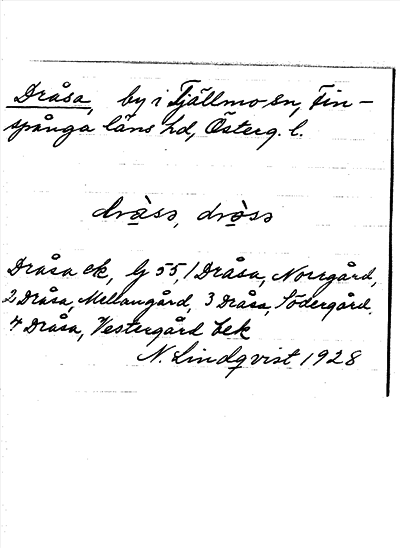 Dråsa, by i Tjällmo sn, Fin-
spånga läns hd, Österg. l.
Dråsa ek, G 55, 1 Dråsa, Norrgård,
2 Dråsa, Mellangård, 3 Dråsa, Södergård.
4 Dråsa, Vestergård bek
N. Lindqvist 1928